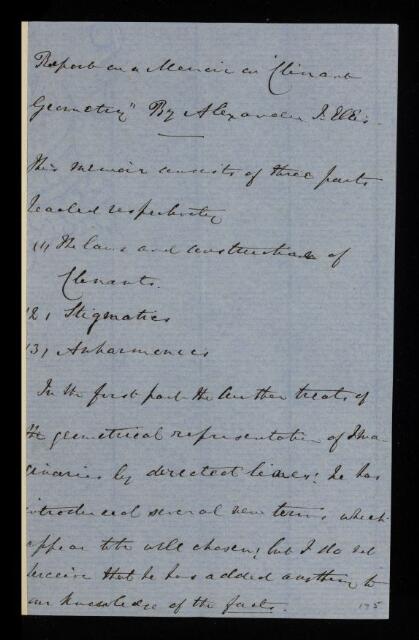 Report on a Memoir on "Clinant
Geometry" By Alexander J. Ellis.
This memoir consists of three parts
headed respectively
(1) The laws and construction of
Clinants.
(2) Stigmatics
(3) Anharmonics
In the first part the Author treats of
the geometrical representation of Ima-
ginaries by directed lines: he has
introduced several new terms which
appear to be well chosen, but I do not
perceive that he has added anything to
our knowledge of the facts.
175